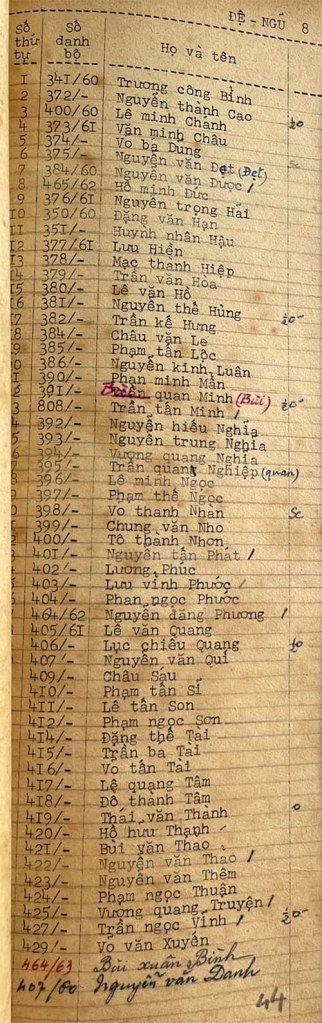 ĐỆ - NGŨ 8
Số thứ tự | Số danh bộ | Họ và tên
1 | 341/60 | Trương công Bình
2 | 372/- | Nguyễn thành Cao
3 | 400/60 | Lê minh Chánh
4 | 373/61 | Văn minh Châu
5 | 374/- | Vo bá Dung
6 | 375/- | Nguyễn văn Đẹt (Đẹt)
7 | 384/60 | Nguyễn văn Được /
8 | 465/62 | Hồ minh Đức
9 | 376/61 | Nguyễn trọng Hải
10 | 350/60 | Đặng văn Hạn
11 | 351/- | Huỳnh nhân Hậu
12 | 377/61 | Lưu Hiền
13 | 378/- | Mạc thanh Hiệp
14 | 379/- | Trần văn Hòa
15 | 380/- | Lê văn Hồ
16 | 381/- | Nguyễn thế Hùng
17 | 382/- | Trần kế Hưng
18 | 384/- | Châu văn Le
19 | 385/- | Phạm tấn Lộc
20 | 386/- | Nguyễn kinh Luân
21 | 390/- | Phan minh Mẫn
22 | 391/- | quan Minh (Bùi)
23 | 808/- | Trần tấn Minh /
392/- | Nguyễn hiếu Nghĩa
393/- | Nguyễn trung Nghĩa
394/- | Vương quang Nghĩa
395/- | Trần quang Nghiệp (quan)
396/- | Lê minh Ngọc
397/- | Phạm thế Ngọc
398/- | Vo thanh Nhàn
399/- | Chung văn Nho
400/- | Tô thành Nhơn
401/- | Nguyễn tấn Phát /
402/- | Lương Phúc
403/- | Lưu vĩnh Phước /
404/- | Phan ngọc Phước
464/62 | Nguyễn đăng Phương /
405/61 | Lê văn Quang
406/- | Lục chiêu Quang
407/- | Nguyễn văn Quí
409/- | Châu Sáu
410/- | Phạm tấn Sĩ
411/- | Lê tấn Son
412/- | Phạm ngọc Sơn
414/- | Đặng thế Tài
415/- | Trần bá Tài
416/- | Vo tấn Tài
417/- | Lê quang Tâm
418/- | Đỗ thành Tâm
419/- | Thái văn Thanh
420/- | Hồ hưu Thạnh
421/- | Bùi văn Thao
422/- | Nguyễn văn Thao /
423/- | Nguyễn văn Thêm
424/- | Phạm ngọc Thuận
425/- | Vương quang Truyện /
427/- | Trần ngọc Vĩnh /
429/- | Vo văn Xuyến
464/63 | Bùi xuân Bình
407/60 | Nguyễn văn Danh
44